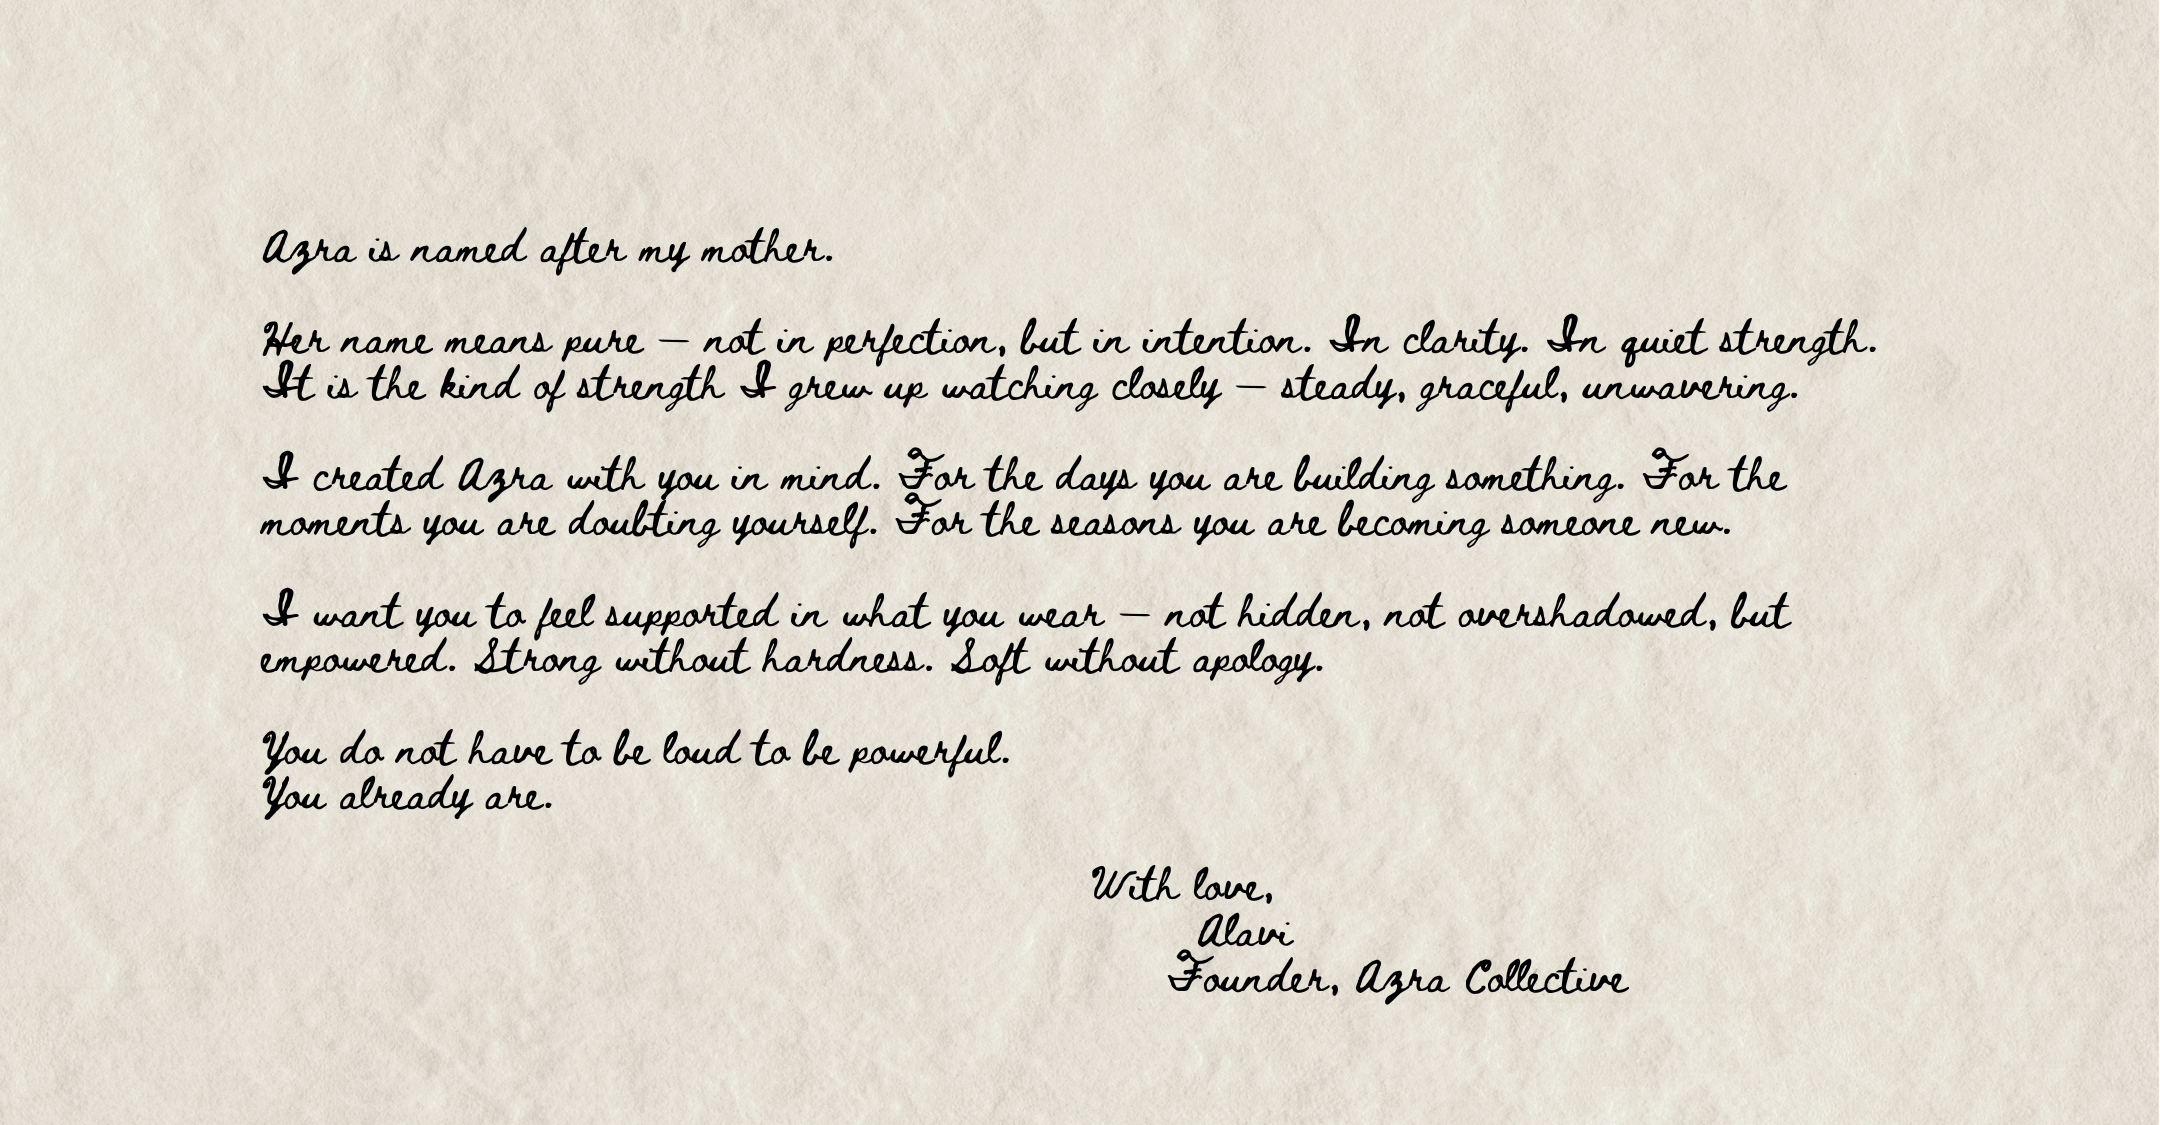 Azra is named after my mother.
Her name means pure — not in perfection, but in intention. In clarity. In quiet strength.
It is the kind of strength I grew up watching closely — steady, graceful, unwavering.
I created Azra with you in mind. For the days you are building something. For the
moments you are doubting yourself. For the seasons you are becoming someone new.
I want you to feel supported in what you wear — not hidden, not overshadowed, but
empowered. Strong without hardness. Soft without apology.
You do not have to be loud to be powerful.
You already are.
With love,
Alavi
Founder, Azra Collective